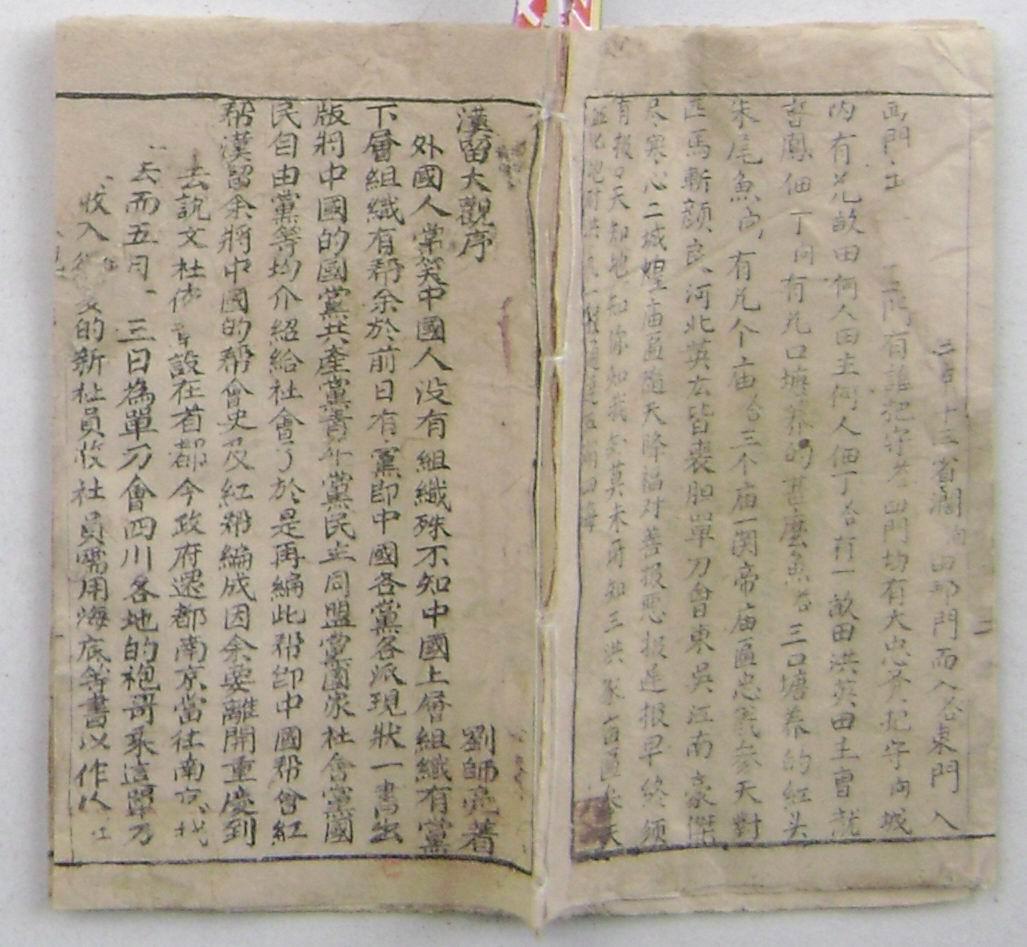 二百十三省 由那門而入答東門入
西門出 門有誰把守答四門均有大忠爷把守內城
內有几畝田何人田主何人佃丁答有一畝田洪英田主曹就
鳳佃丁問有几口塘養的甚麼魚答三口塘養的紅头
朱尾魚 有几个庙答三个庙一関帝庙匾忠義参天對
匹馬斬顔良河北英玄皆喪胆單刀會東吴江南豪傑
尽寒心二城煌庙匾随天降福对善报恶报迟报早终须
有报天知地知你知我知莫未尔知三洪 匾 天
漢留大觀序
劉師亮著
外國人常笑中國人没有組織殊不知中國上層組織有黨
下層組織有帮余於前日有黨即中國各黨各派現狀一書出
版將中國的國黨共產黨青年黨民主同盟黨國家社會黨國
民自由黨等均介紹給社會了於是再編此帮即中國帮會紅
帮漢留余將中國的帮會史及紅帮編成因余要離開重慶到
去說文社 設在首都今政府還都南京當往南京我
去而五月 三日為單刀會四川各地的袍哥乘這單刀
收入 的新社員收社員需用海底等書以作